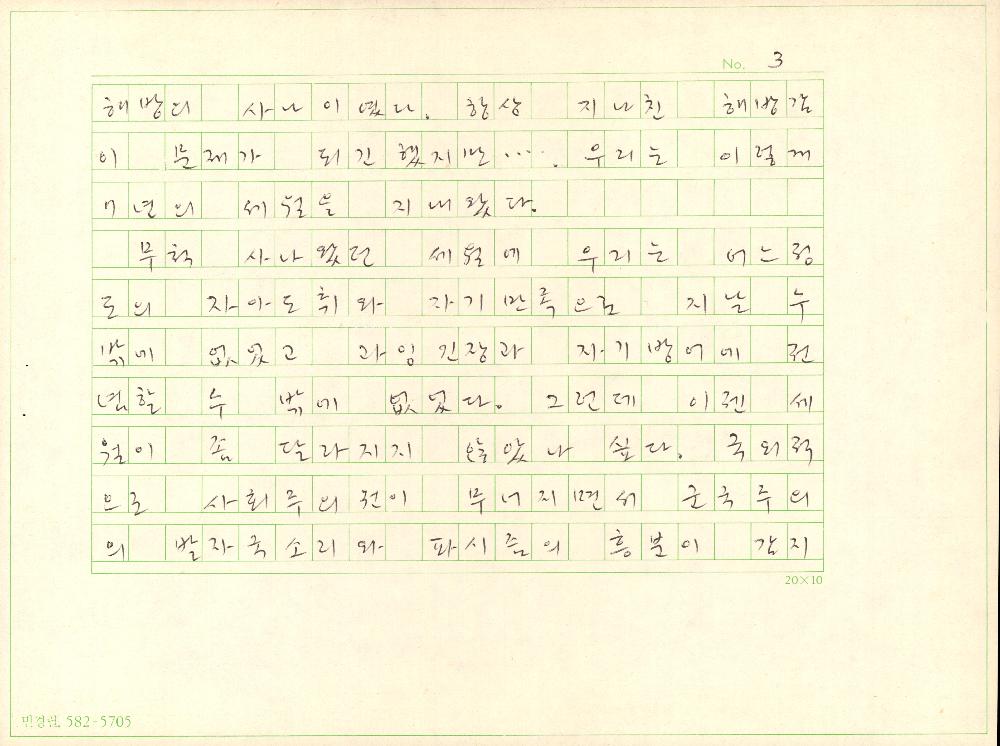 No. 3
해방의 사나이였다. 항상 지나친 해방감
이 문제가 되긴 했지만…. 우리는 이렇게
7년의 세월을 지내왔다.
무척 사나왔던 세월에 우리는 어느정
도의 자아도취와 자기만족으로 지날 수
밖에 없었고 과잉긴장과 자기방어에 전
념할 수 밖에 없었다. 그런데 이젠 세
월이 좀 달라지지 않았나 싶다. 국외적
으로 사회주의권이 무너지면서 군국주의
의 발자국소리와 파시즘의 흥분이 감지
20×10
민경갑. 582-5705